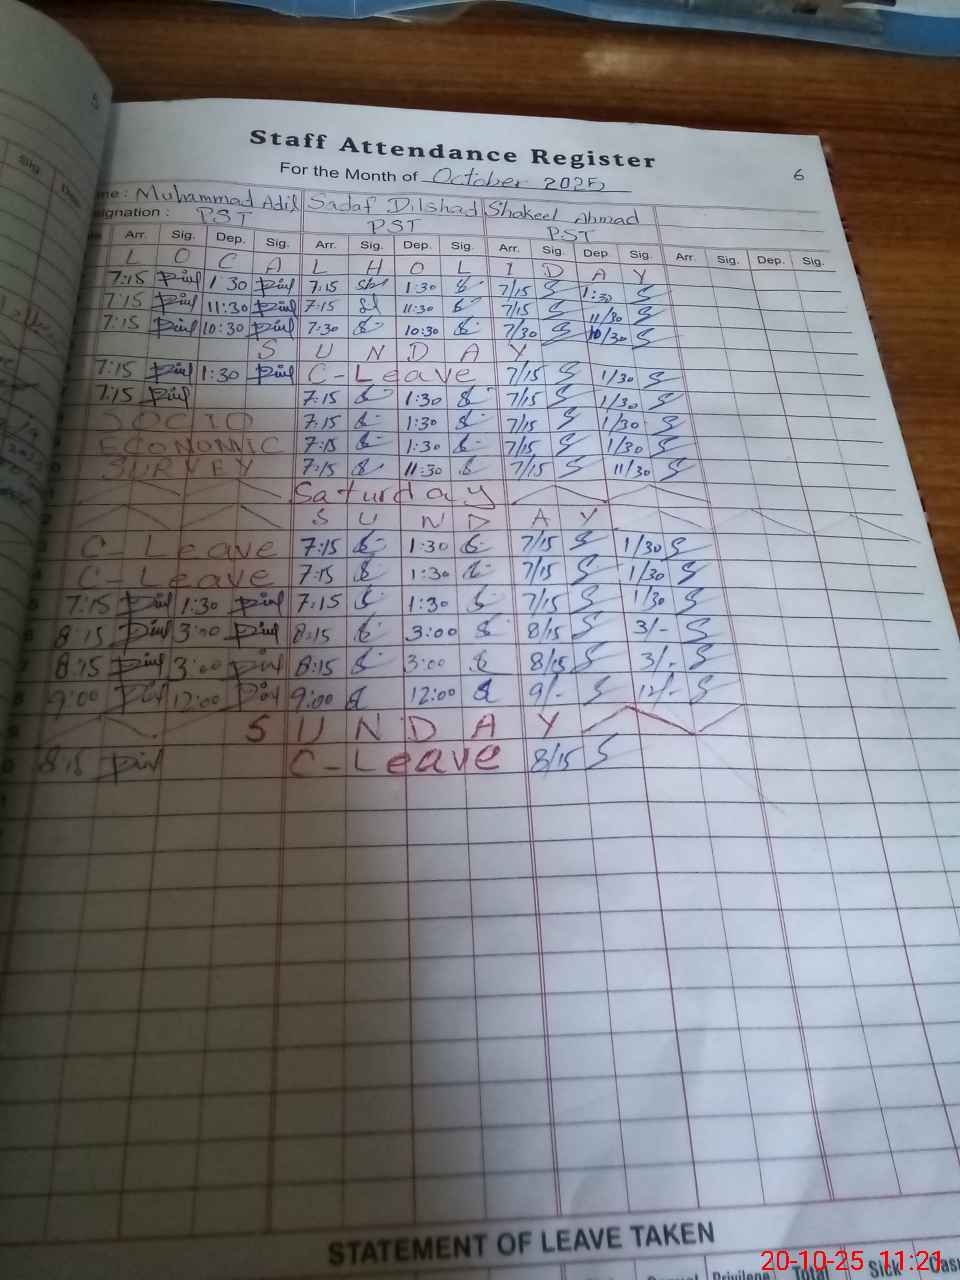 5
Sig
Staff Attendance Register
For the Month of October 2025
6
me : Muhammad Adil Sadaf Dilshad Shakeel Ahmad
signation : PST PST PST
Arr. Sig. Dep. Sig. Arr. Sig. Dep. Sig. Arr. Sig. Dep. Sig. Arr. Sig. Dep. Sig.
L O C A L H O L I D A Y
7:15 1 30 7:15 1:30 7/15 1:30
7:15 11:30 7:15 11:30 7/15 11/30
7:15 10:30 7:30 10:30 7/30 10/30
S U N D A Y
7:15 1:30 C-Leave 7/15 1/30
7:15 7:15 1:30 7/15 1/30
SOCIO 7:15 1:30 7/15 1/30
ECONOMIC 7:15 1:30 7/15 1/30
SURVEY 7:15 11:30 7/15 11/30
Saturday
S U N D A Y
C-Leave 7:15 1:30 7/15 1/30
C-Leave 7:15 1:30 7/15 1/30
7:15 1:30 7:15 1:30 7/15 1/30
8:15 3:00 8:15 3:00 8/15 3/-
8:15 3:00 8:15 3:00 8/15 3/-
9:00 12:00 9:00 12:00 9/- 12/-
S U N D A Y
8:15 C-Leave 8/15
STATEMENT OF LEAVE TAKEN
Privilege Total Sick Casu
20-10-25 11:21